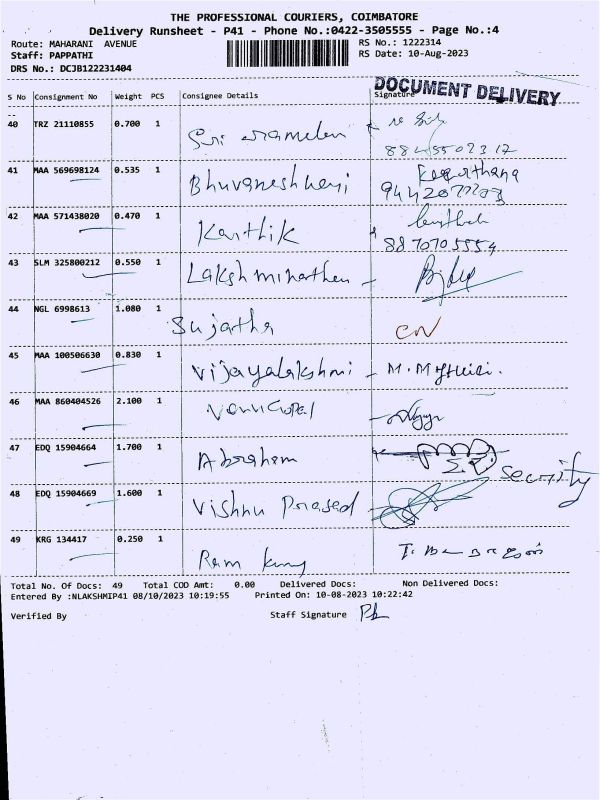 THE PROFESSIONAL COURIERS, COIMBATORE
Delivery Runsheet - P41 - Phone No.:0422-3505555 - Page No.:4
Route: MAHARANI AVENUE
RS No.: 1222314
Staff: PAPPATHI
RS Date: 10-Aug-2023
DRS No.: DCJB122231404
DOCUMENT DELIVERY
S No Consignment No Weight PCS Consignee Details Signature
40 TRZ 21110855 0.700 1 Sri
41 MAA 569698124 0.535 1
42 MAA 571438020 0.470 1 Karthik
8870705554
43 SLM 325800212 0.550 1
44 NGL 6998613 1.080 1 Sujatha CN
45 MAA 100506630 0.830 1 Vijayalakshmi M.
46 MAA 860404526 2.100 1
47 EDQ 15904664 1.700 1 Abraham
Security
48 EDQ 15904669 1.600 1 Vishnu Prasad
49 KRG 134417 0.250 1 Ram
Total No. Of Docs: 49 Total COD Amt: 0.00 Delivered Docs: Non Delivered Docs:
Entered By :NLAKSHMIP41 08/10/2023 10:19:55 Printed On: 10-08-2023 10:22:42
Verified By Staff Signature